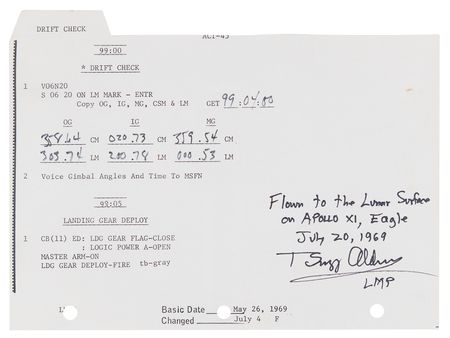 DRIFT CHECK
ACT-45
99:00
* DRIFT CHECK
1 V06N20
S 06 20 ON LM MARK - ENTR
Copy OG, IG, MG, CSM & LM GET 99:04:00
OG IG MG
358.64 CM 020.73 CM 359.54 CM
303.74 LM 200.78 LM 000.53 LM
2 Voice Gimbal Angles And Time To MSFN
LANDING GEAR DEPLOY
1 CB(11) ED: LDG GEAR FLAG-CLOSE
: LOGIC POWER A-OPEN
MASTER ARM-ON
LDG GEAR DEPLOY-FIRE tb-gray
Flown to the Lunar Surface
on APOLLO XI, Eagle
July 20, 1969
Buzz Aldrin
LMP
Basic Date May 26, 1969
Changed July 4 F